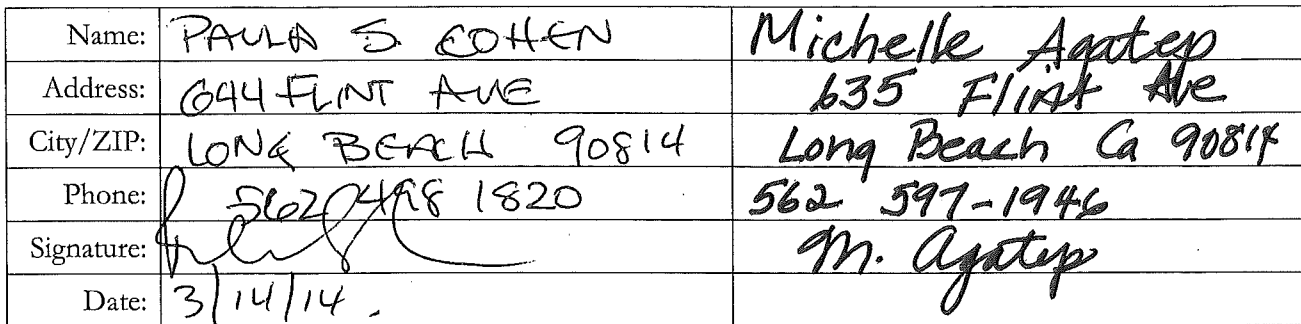 Name: PAULA S. COHEN Michelle Agatep
Address: 644 FLINT AVE 635 Flint Ave
City/ZIP: LONG BEACH 90814 Long Beach Ca 90814
Phone: 562 498 1820 562 597-1946
Signature: M. Agatep
Date: 3/14/14.